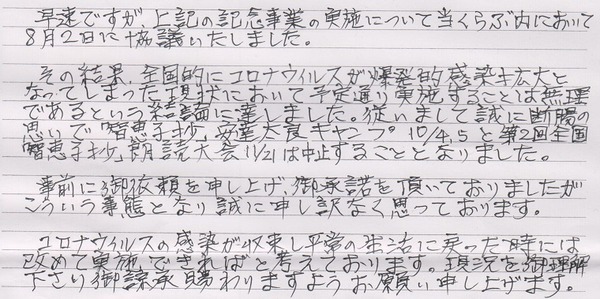 早速ですが、上記の記念事業の実施について当くらぶ内において
8月2日に協議いたしました。
その結果、全国的にコロナウィルスが爆発的感染拡大と
なってしまった現状において予定通り実施することは無理
であるという結論に達しました。従いまして誠に断腸の
思いで「智恵子抄」安達太良キャンプ10/4,5と第2回全国
「智恵子抄」朗読大会11/21は中止することとなりました。
事前に御依頼を申し上げ、御承諾を頂いておりましたが
こういう事態となり誠に申し訳なく思っております。
コロナウィルスの感染が収束し平常の生活に戻った時には
改めて実施できればと考えております。現況を御理解
下さり御諒承賜わりますようお願い申し上げます。